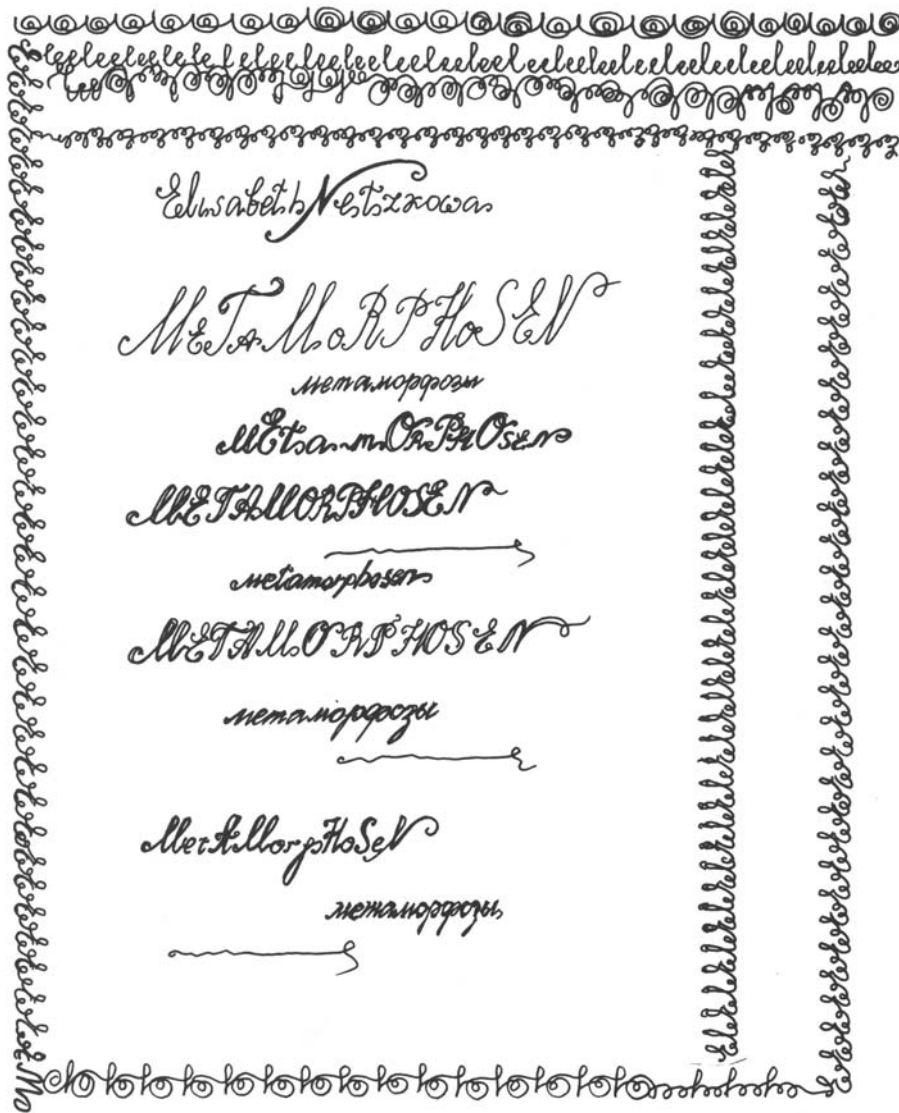 Elisabeth Netzkowa
METAMoRPHoSEN
метаморфозы
MEtamORPHOsEN
METAMORPHOSEN
metamorphosen
METAMORPHOSEN
метаморфозы
MetAMorpHoSeN
метаморфозы